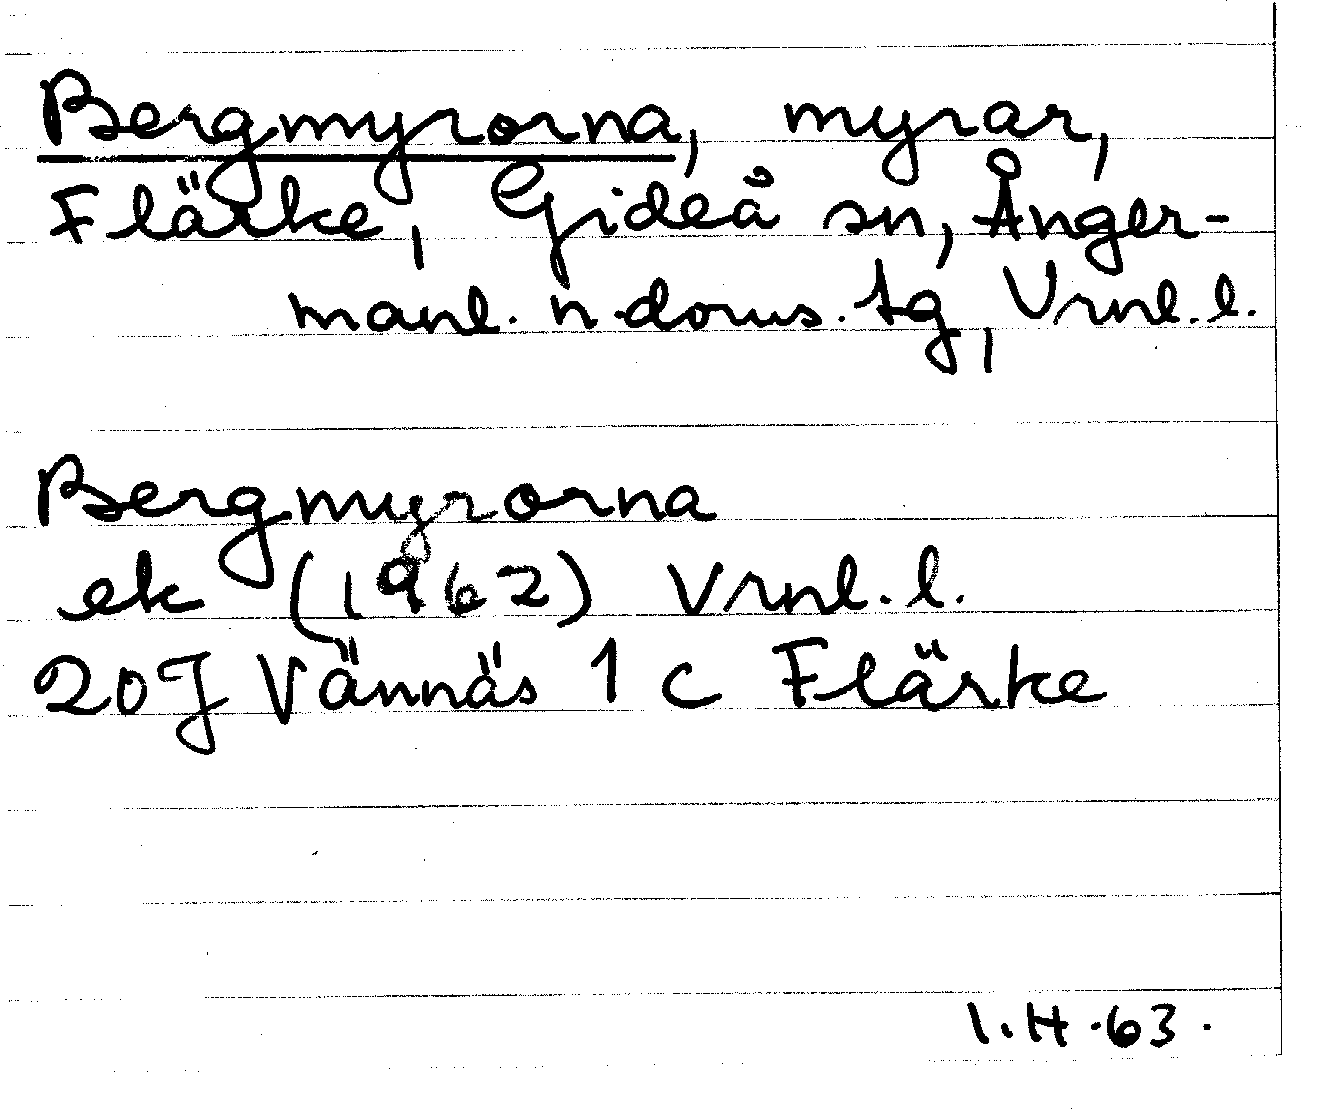 Bergmyrorna, myrar,
Flärke, Gideå sn, Ånger-
manl. n. doms. tg, Vrnl. l.
Bergmyrorna
ek (1962) Vrnl. l.
20J Vännäs 1 c Flärke
I.H.63.